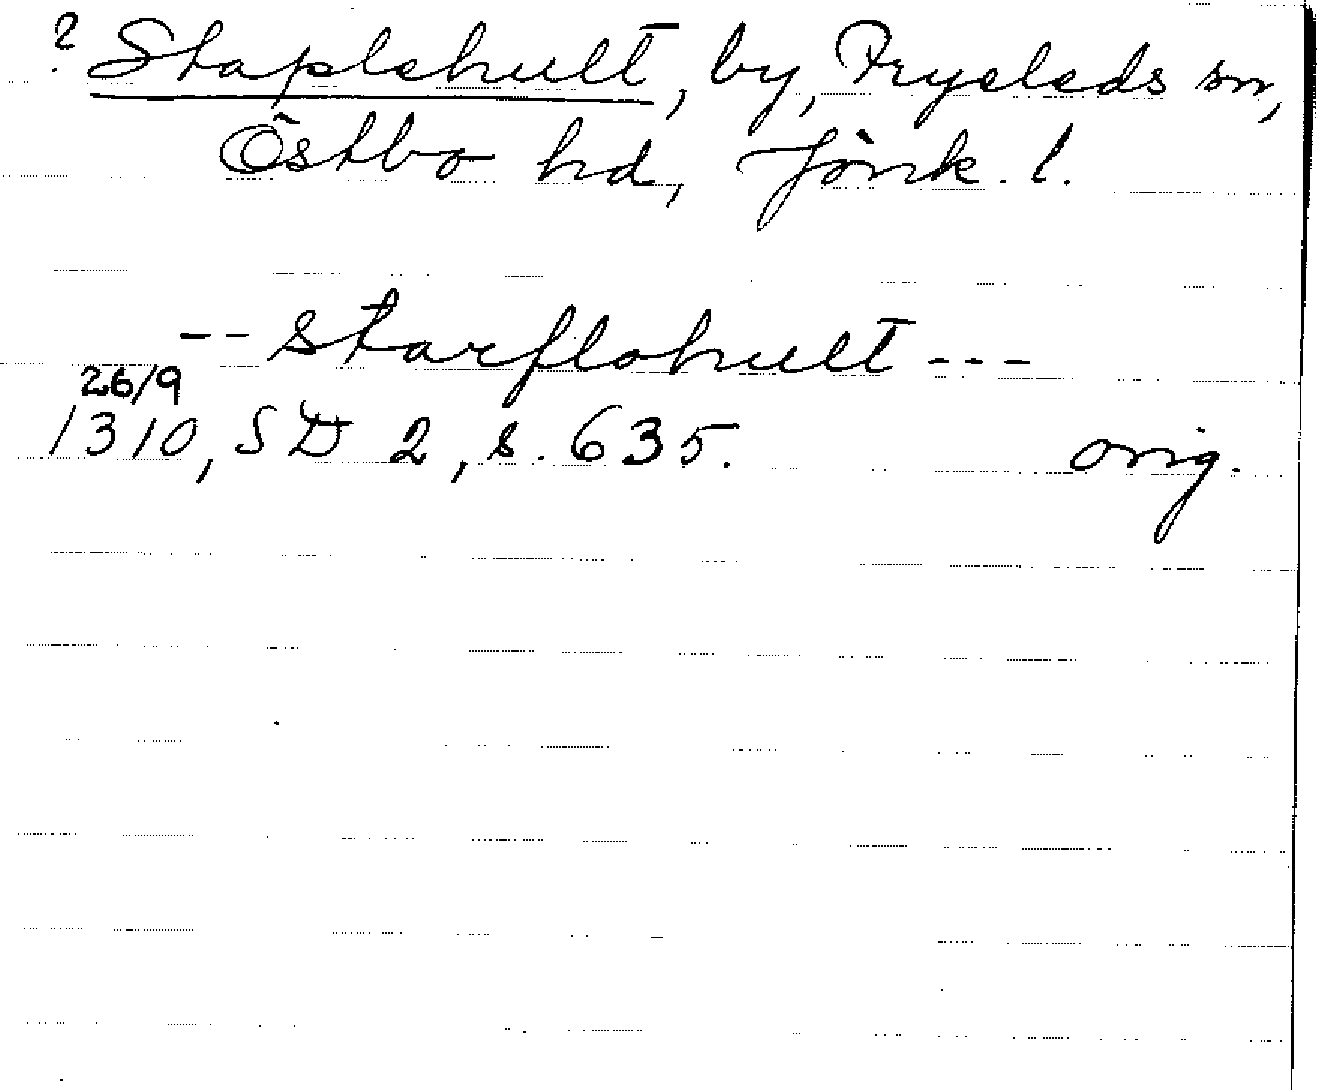 ? Staplehult, by, Fryeleds sn,
Östbo hd, Jönk. l.
-- starflohult ---
26/9
1310, SD 2, s. 635. orig.